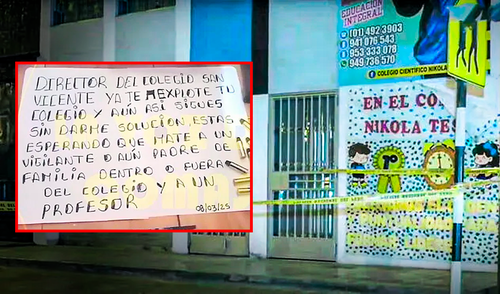 EDUCACIÓN
INTEGRAL
(01) 492 3903
941 076 543
953 333 078
949 736 570
COLEGIO CIENTIFICO NIKOLA
DIRECTOR DEL COLEGIO SAN
VICENTE YA TE EXPLOTE TU
COLEGIO Y AUN ASI SIGUES
SIN DARME SOLUCIÓN, ESTAS
ESPERANDO QUE MATE A UN
VIGILANTE O AUN PADRE DE
FAMILIA DENTRO O FUERA
DEL COLEGIO Y A UN
PROFESOR
08/03/25
EN EL CO
NIKOLA TES